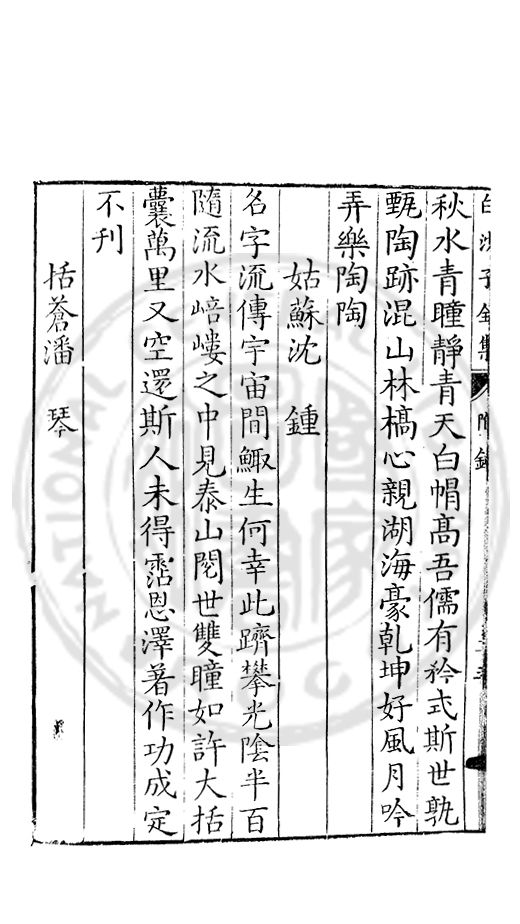 白沙子全集 附錄
秋水青瞳靜青天白帽高吾儒有矜式斯世孰
甄陶跡混山林槁心親湖海豪乾坤好風月吟
弄樂陶陶
姑蘇沈 鍾
名字流傳宇宙間鯫生何幸此躋攀光陰半百
隨流水㟝嶁之中見泰山閱世雙瞳如許大括
囊萬里又空還斯人未得霑恩澤著作功成定
不刊
括蒼潘 琴